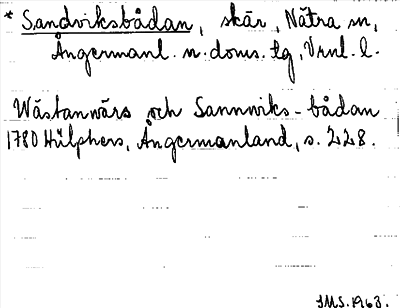 * Sandviksbådan, skär, Nätra sn,
Ångermanl. n. doms. tg, Vrnl. l.
Wästanwärs och Sannwiks-bådan
1780 Hülphers, Ångermanland, s. 228.
IMS. 1963.